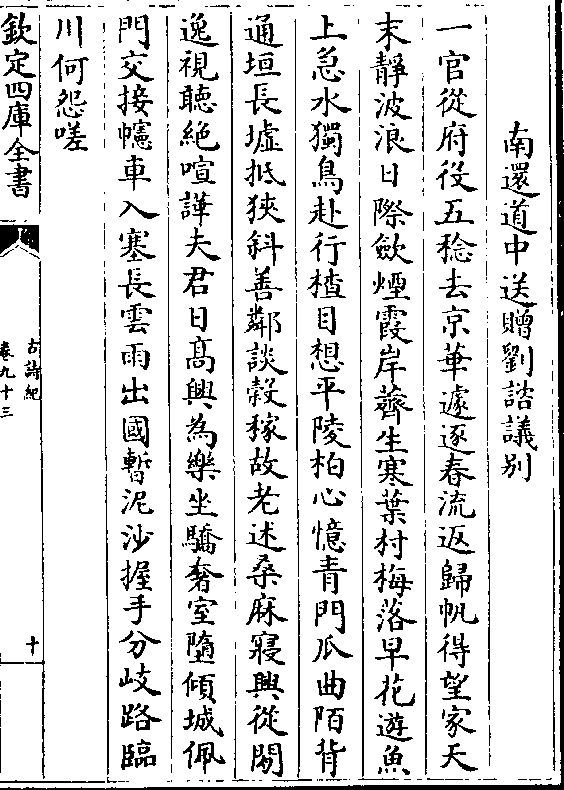 南還道中送贈劉諮議別
一官從府役五稔去京華遽逐春流返歸帆得望家天
末靜波浪日際歛煙霞岸薺生寒葉村梅落早花遊魚
上急水獨鳥赴行楂目想平陵柏心憶青門瓜曲陌背
通垣長墟抵狹斜善鄰談榖稼故老述桑麻寢興從閒
逸視聽絶喧譁夫君日髙興為樂坐驕奢室墮傾城佩
門交接幰車入塞長雲雨出國暫泥沙握手分岐路臨
川何怨嗟
欽定四庫全書
古詩紀
卷九十三
十